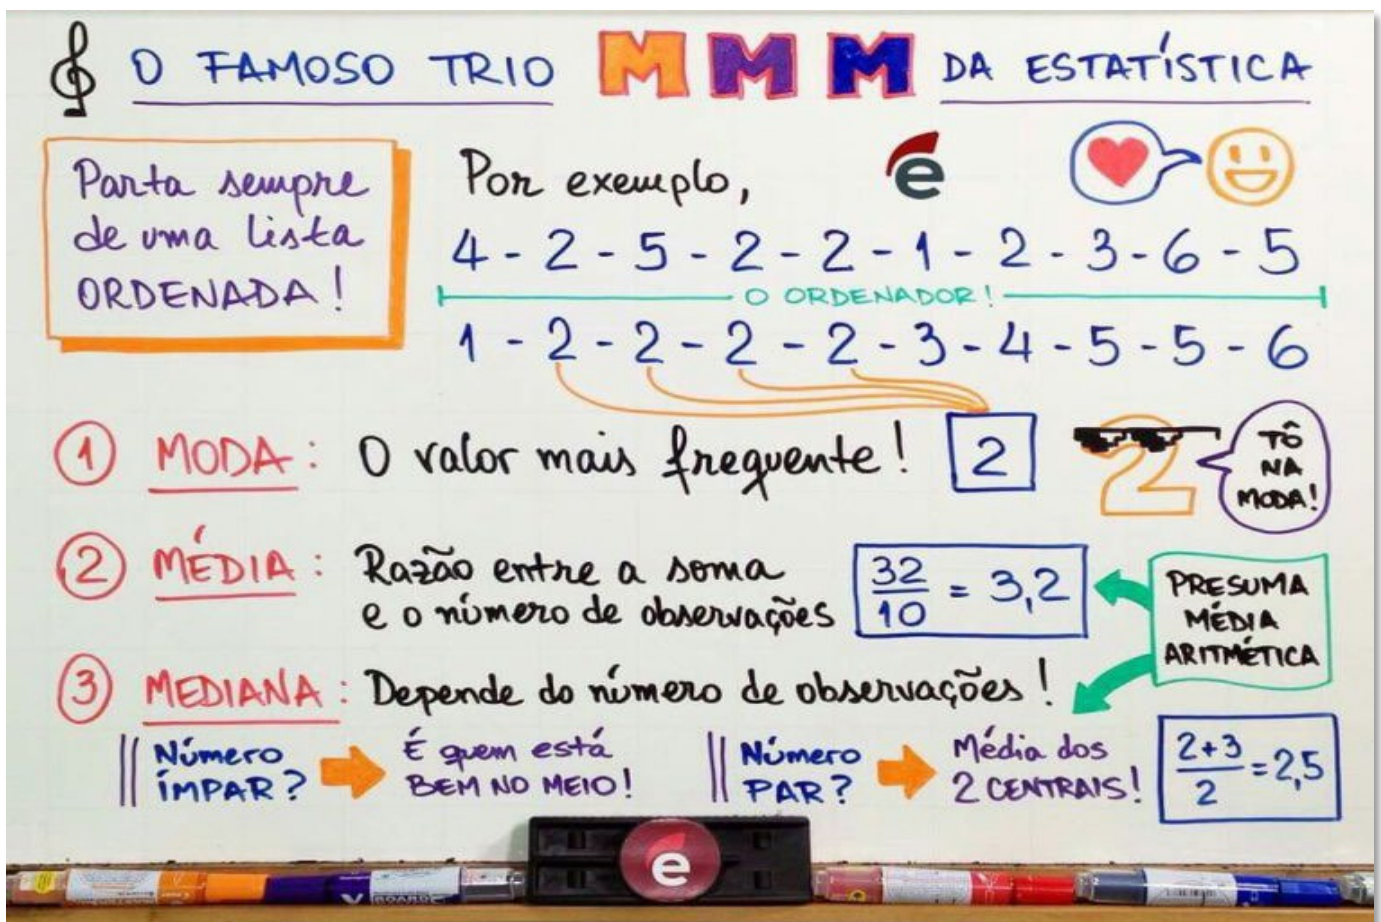 O FAMOSO TRIO M M M DA ESTATÍSTICA
Parta sempre
de uma lista
ORDENADA!
Por exemplo,
e
4 - 2 - 5 - 2 - 2 - 1 - 2 - 3 - 6 - 5
O ORDENADOR!
1 - 2 - 2 - 2 - 2 - 3 - 4 - 5 - 5 - 6
1 MODA: O valor mais frequente! 2
2
TÔ
NA
MODA!
2 MÉDIA: Razão entre a soma
e o número de observações
32/10 = 3,2
PRESUMA
MÉDIA
ARITMÉTICA
3 MEDIANA: Depende do número de observações!
Número
ÍMPAR?
É quem está
BEM NO MEIO!
Número
PAR?
Média dos
2 CENTRAIS!
2+3/2 = 2,5
e